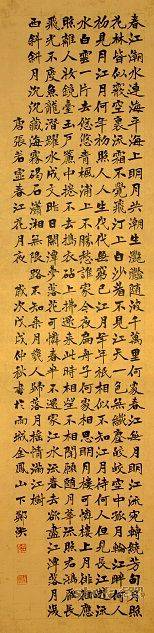 春江潮水連海平海上明月共潮生灩灩隨波千萬里何處春江無月明江流宛轉繞芳甸月照
花林皆似霰空裏流霜不覺飛汀上白沙看不見江天一色無纖塵皎皎空中孤月輪江畔何人
初見月江月何年初照人人生代代無窮已江月年年祗相似不知江月待何人但見長江送流
水白雲一片去悠悠青楓浦上不勝愁誰家今夜扁舟子何處相思明月樓可憐樓上月徘徊應
照離人妝鏡臺玉戶簾中捲不去搗衣砧上拂還來此時相望不相聞願逐月華流照君鴻雁長
飛光不度魚龍潛躍水成文昨夜閑潭夢落花可憐春半不還家江水流春去欲盡江潭落月復
西斜斜月沉沉藏海霧碣石瀟湘無限路不知乘月幾人歸落月搖情滿江樹
唐張若虛春江花月夜 歲次戊戌仲秋書於雨城金鳳山下鄭洪